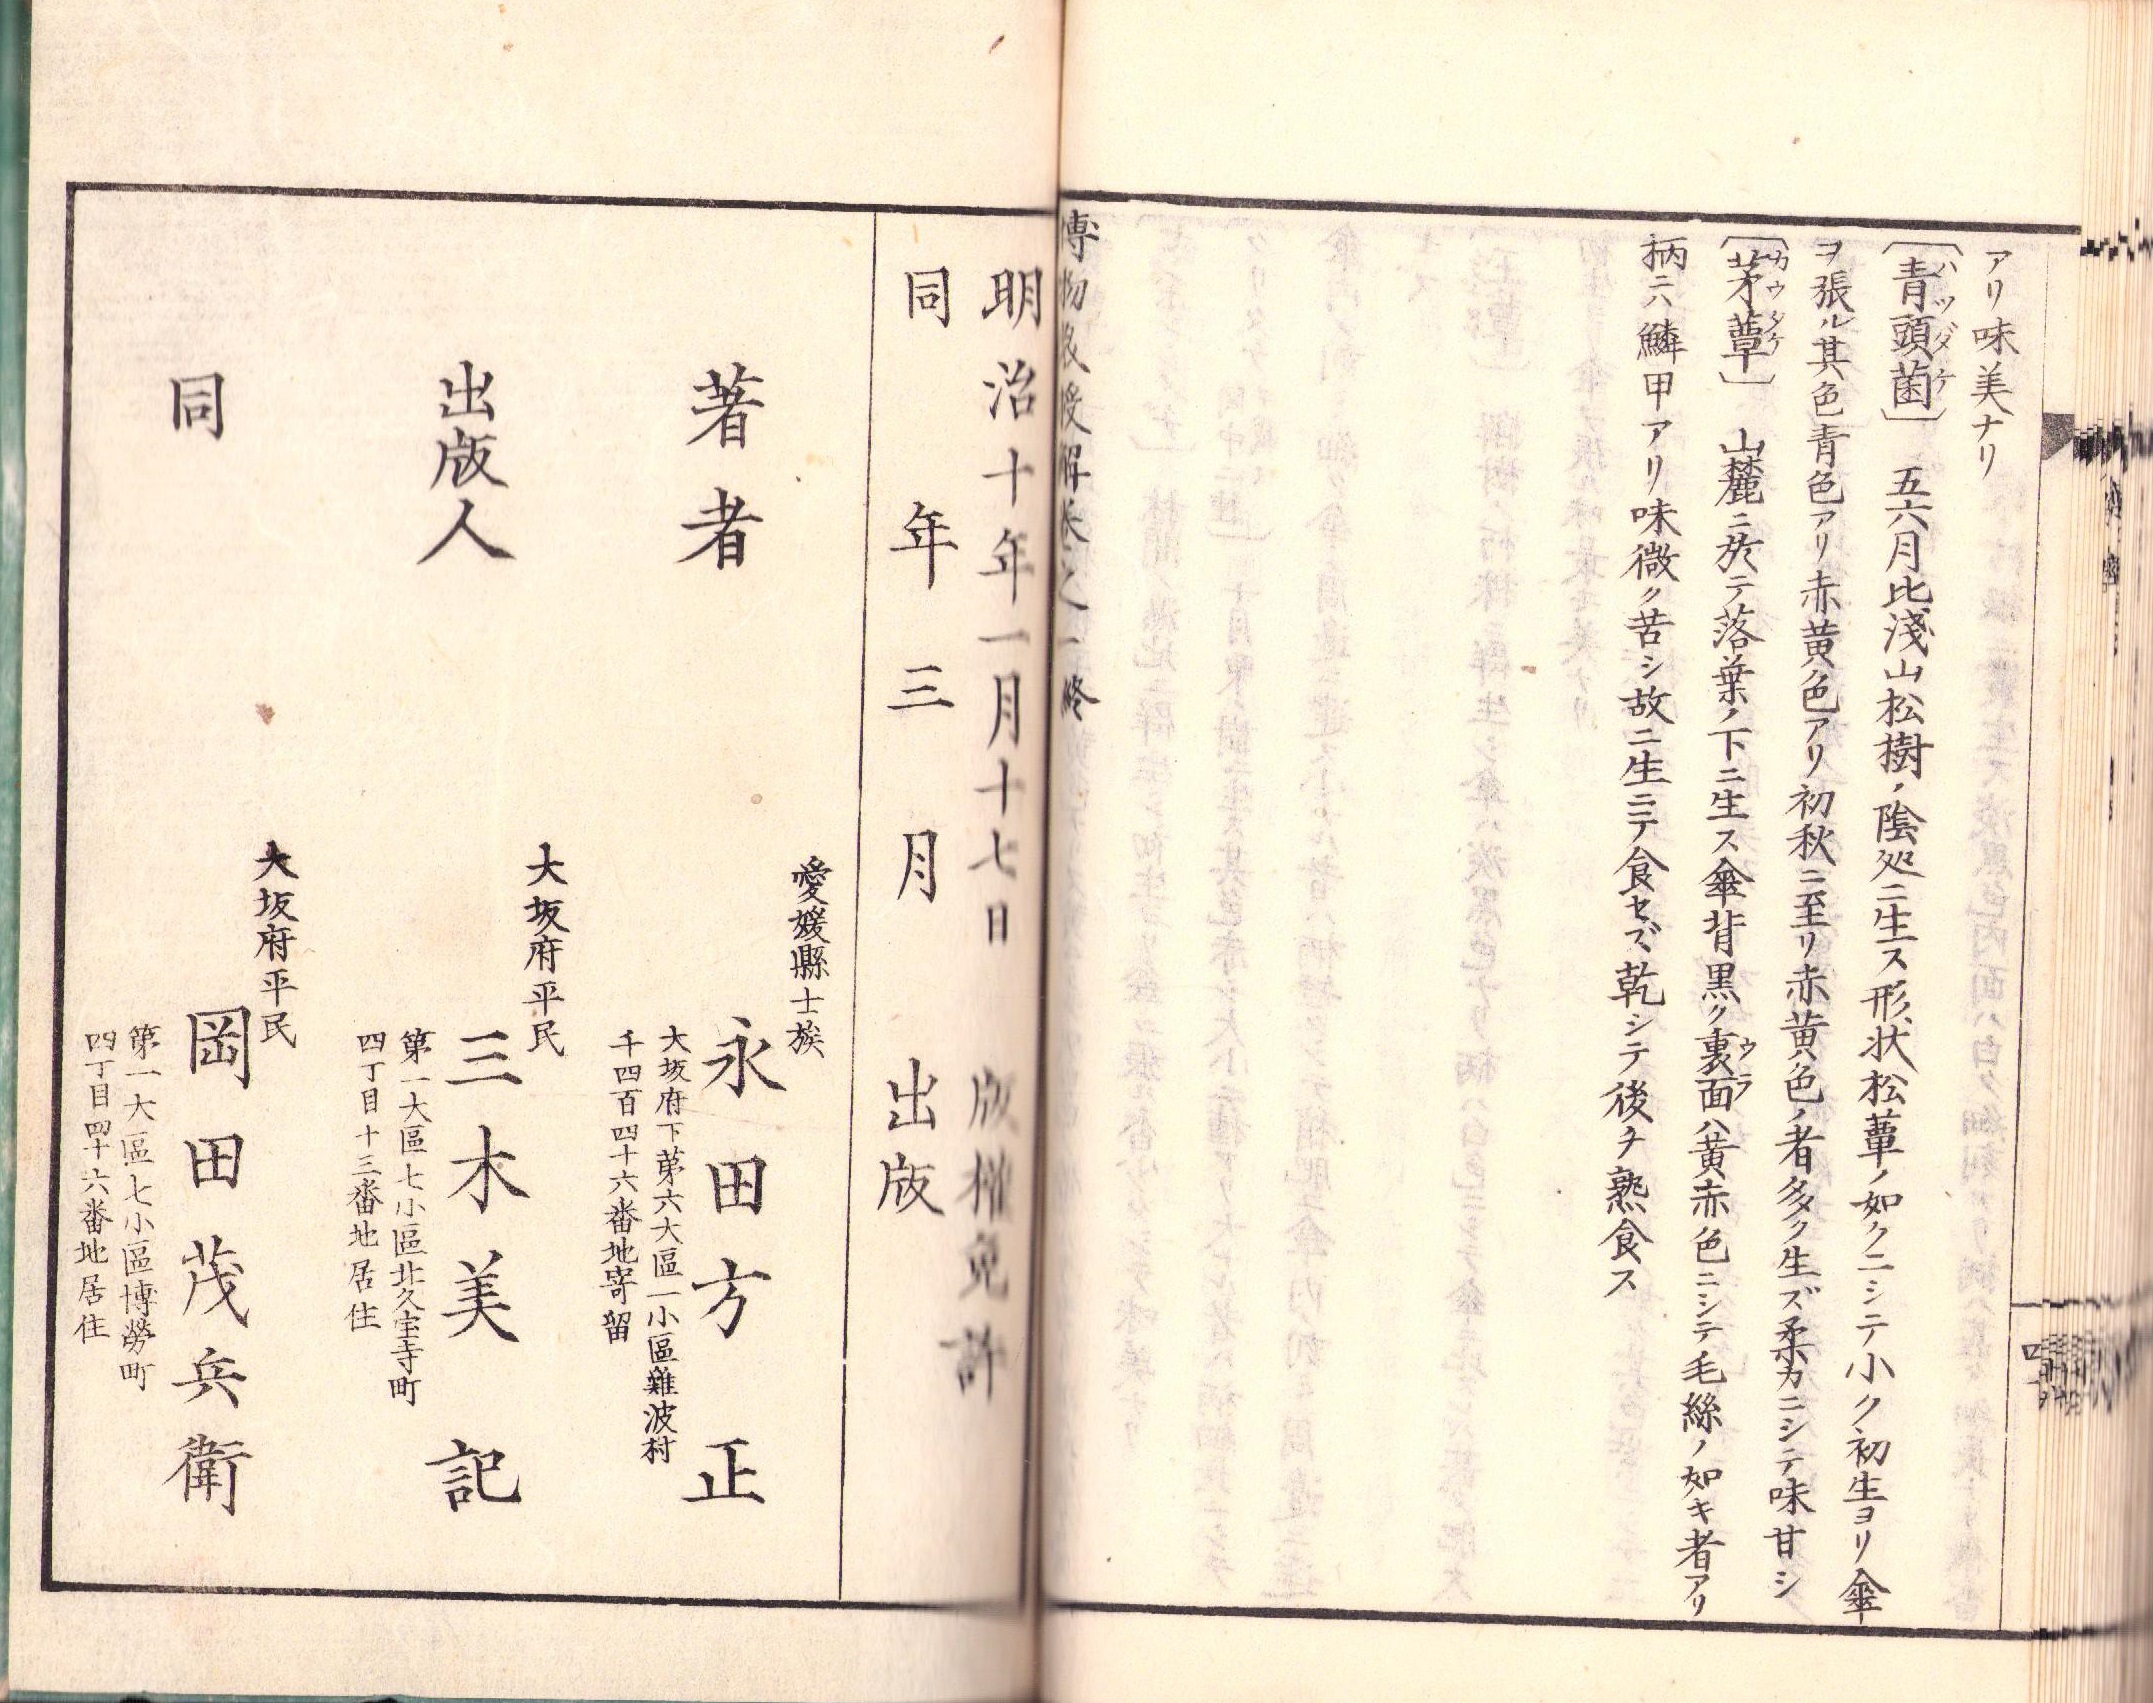 アリ味美ナリ
〔青頭菌〕 五六月比淺山松樹ノ陰処ニ生ス形状松蕈ノ如クニシテ小ク初生ヨリ傘
ハツダケ
ヲ張ル其色青色アリ赤黄色アリ初秋ニ至リ赤黄色ノ者多ク生ズ柔カニシテ味甘シ
〔茅蕈〕 山麓ニ於テ落葉ノ下ニ生ス傘背黒ク裏面ハ黄赤色ニシテ毛絲ノ如キ者アリ
カウタケ
ウラ
柄ニハ鱗甲アリ味微ク苦シ故ニ生ニテ食セズ乾シテ後チ熟食ス
博物教授解卷之一終
明治十年一月十七日 版権免許
同年三月 出版
愛媛縣士族
著者 永田方正
大坂府下苐六大區一小區難波村
千四百四十六番地寄留
大坂府平民
出版人 三木美記
第一大區七小區北久宝寺町
四丁目十三番地居住
大坂府平民
同 岡田茂兵衛
第一大區七小區博勞町
四丁目四十六番地居住